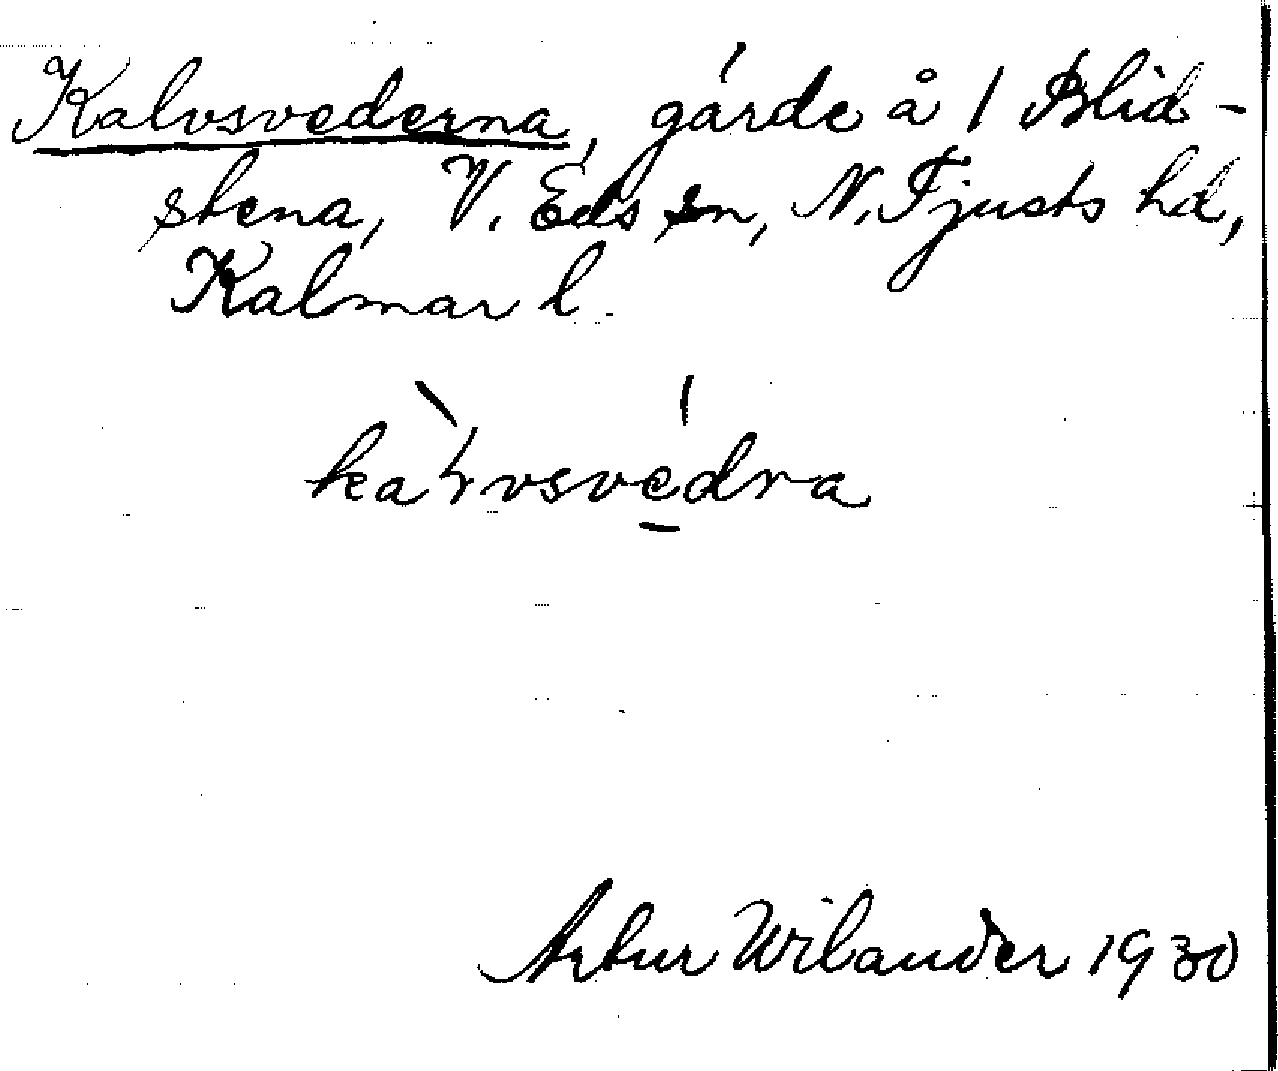 Kalvsvederna, gärde å 1 Blid-
stena, V. Eds sn, N. Tjusts hd,
Kalmar l.
kàɽvsvédra
Artur Wilander 1930